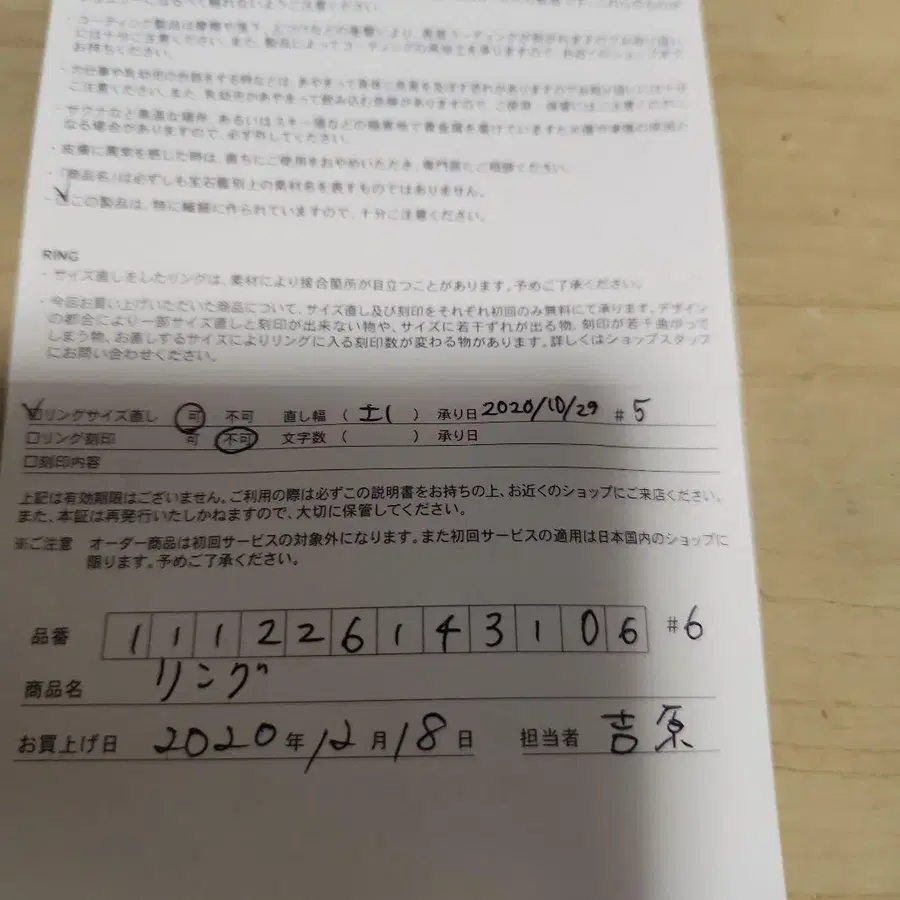 ・コーティング製品は摩擦や落下、
には十分ご注意ください。また、製品によってコーティングの
お持ちください。
ご注意ください。また、乳幼児があやまって飲み込む危険がありますので、ご使用・保管にはご注意ください。
・サウナなど高温な場所、あるいはスキー場などの極寒地で貴金属を着けていますと火傷や凍傷の原因と
なる場合がありますので、必ず外してください。
・皮膚に異常を感じた時は、直ちにご使用をおやめいただき、専門医にご相談ください。
・「商品名」は必ずしも宝石鑑別上の素材名を表すものではありません。
この製品は、特に繊細に作られていますので、十分ご注意ください。
RING
・サイズ直しをしたリングは、素材により接合箇所が目立つことがあります。予めご了承ください。
・今回お買い上げいただいた商品について、サイズ直し及び刻印をそれぞれ初回のみ無料にて承ります。デザイン
の都合により一部サイズ直しと刻印が出来ない物や、サイズに若干ずれが出る物、刻印が若干曲がって
しまう物、お直しするサイズによりリングに入る刻印数が変わる物があります。詳しくはショップスタッフ
にお問い合わせください。
☑リングサイズ直し 可 不可 直し幅 ( ±1 ) 承り日 2020/10/29 #5
□リング刻印 可 不可 文字数 ( ) 承り日
□刻印内容
上記は有効期限はございません。ご利用の際は必ずこの説明書をお持ちの上、お近くのショップにご来店ください。
また、本証は再発行いたしかねますので、大切に保管してください。
※ご注意 オーダー商品は初回サービスの対象外になります。また初回サービスの適用は日本国内のショップに
限ります。予めご了承ください。
品番 111226143106 #6
商品名 リング
お買上げ日 2020年12月18日 担当者 吉原